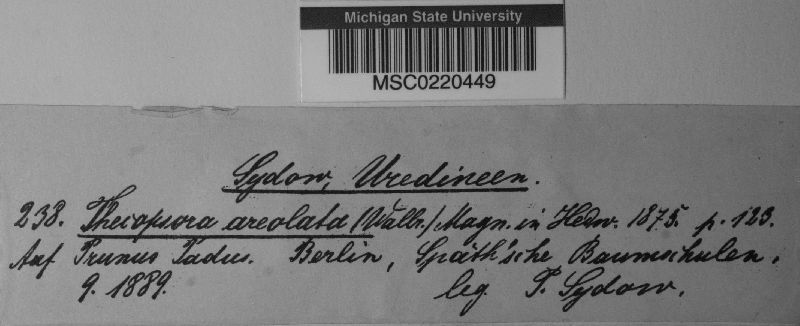 Michigan State University
MSC0220449
Sydow, Uredineen.
238. Thecopsora areolata (Wallr.) Magn. in Hedw. 1875. p. 123.
Auf Prunus Padus. Berlin, Späth'sche Baumschulen.
9. 1889. leg. P. Sydow.